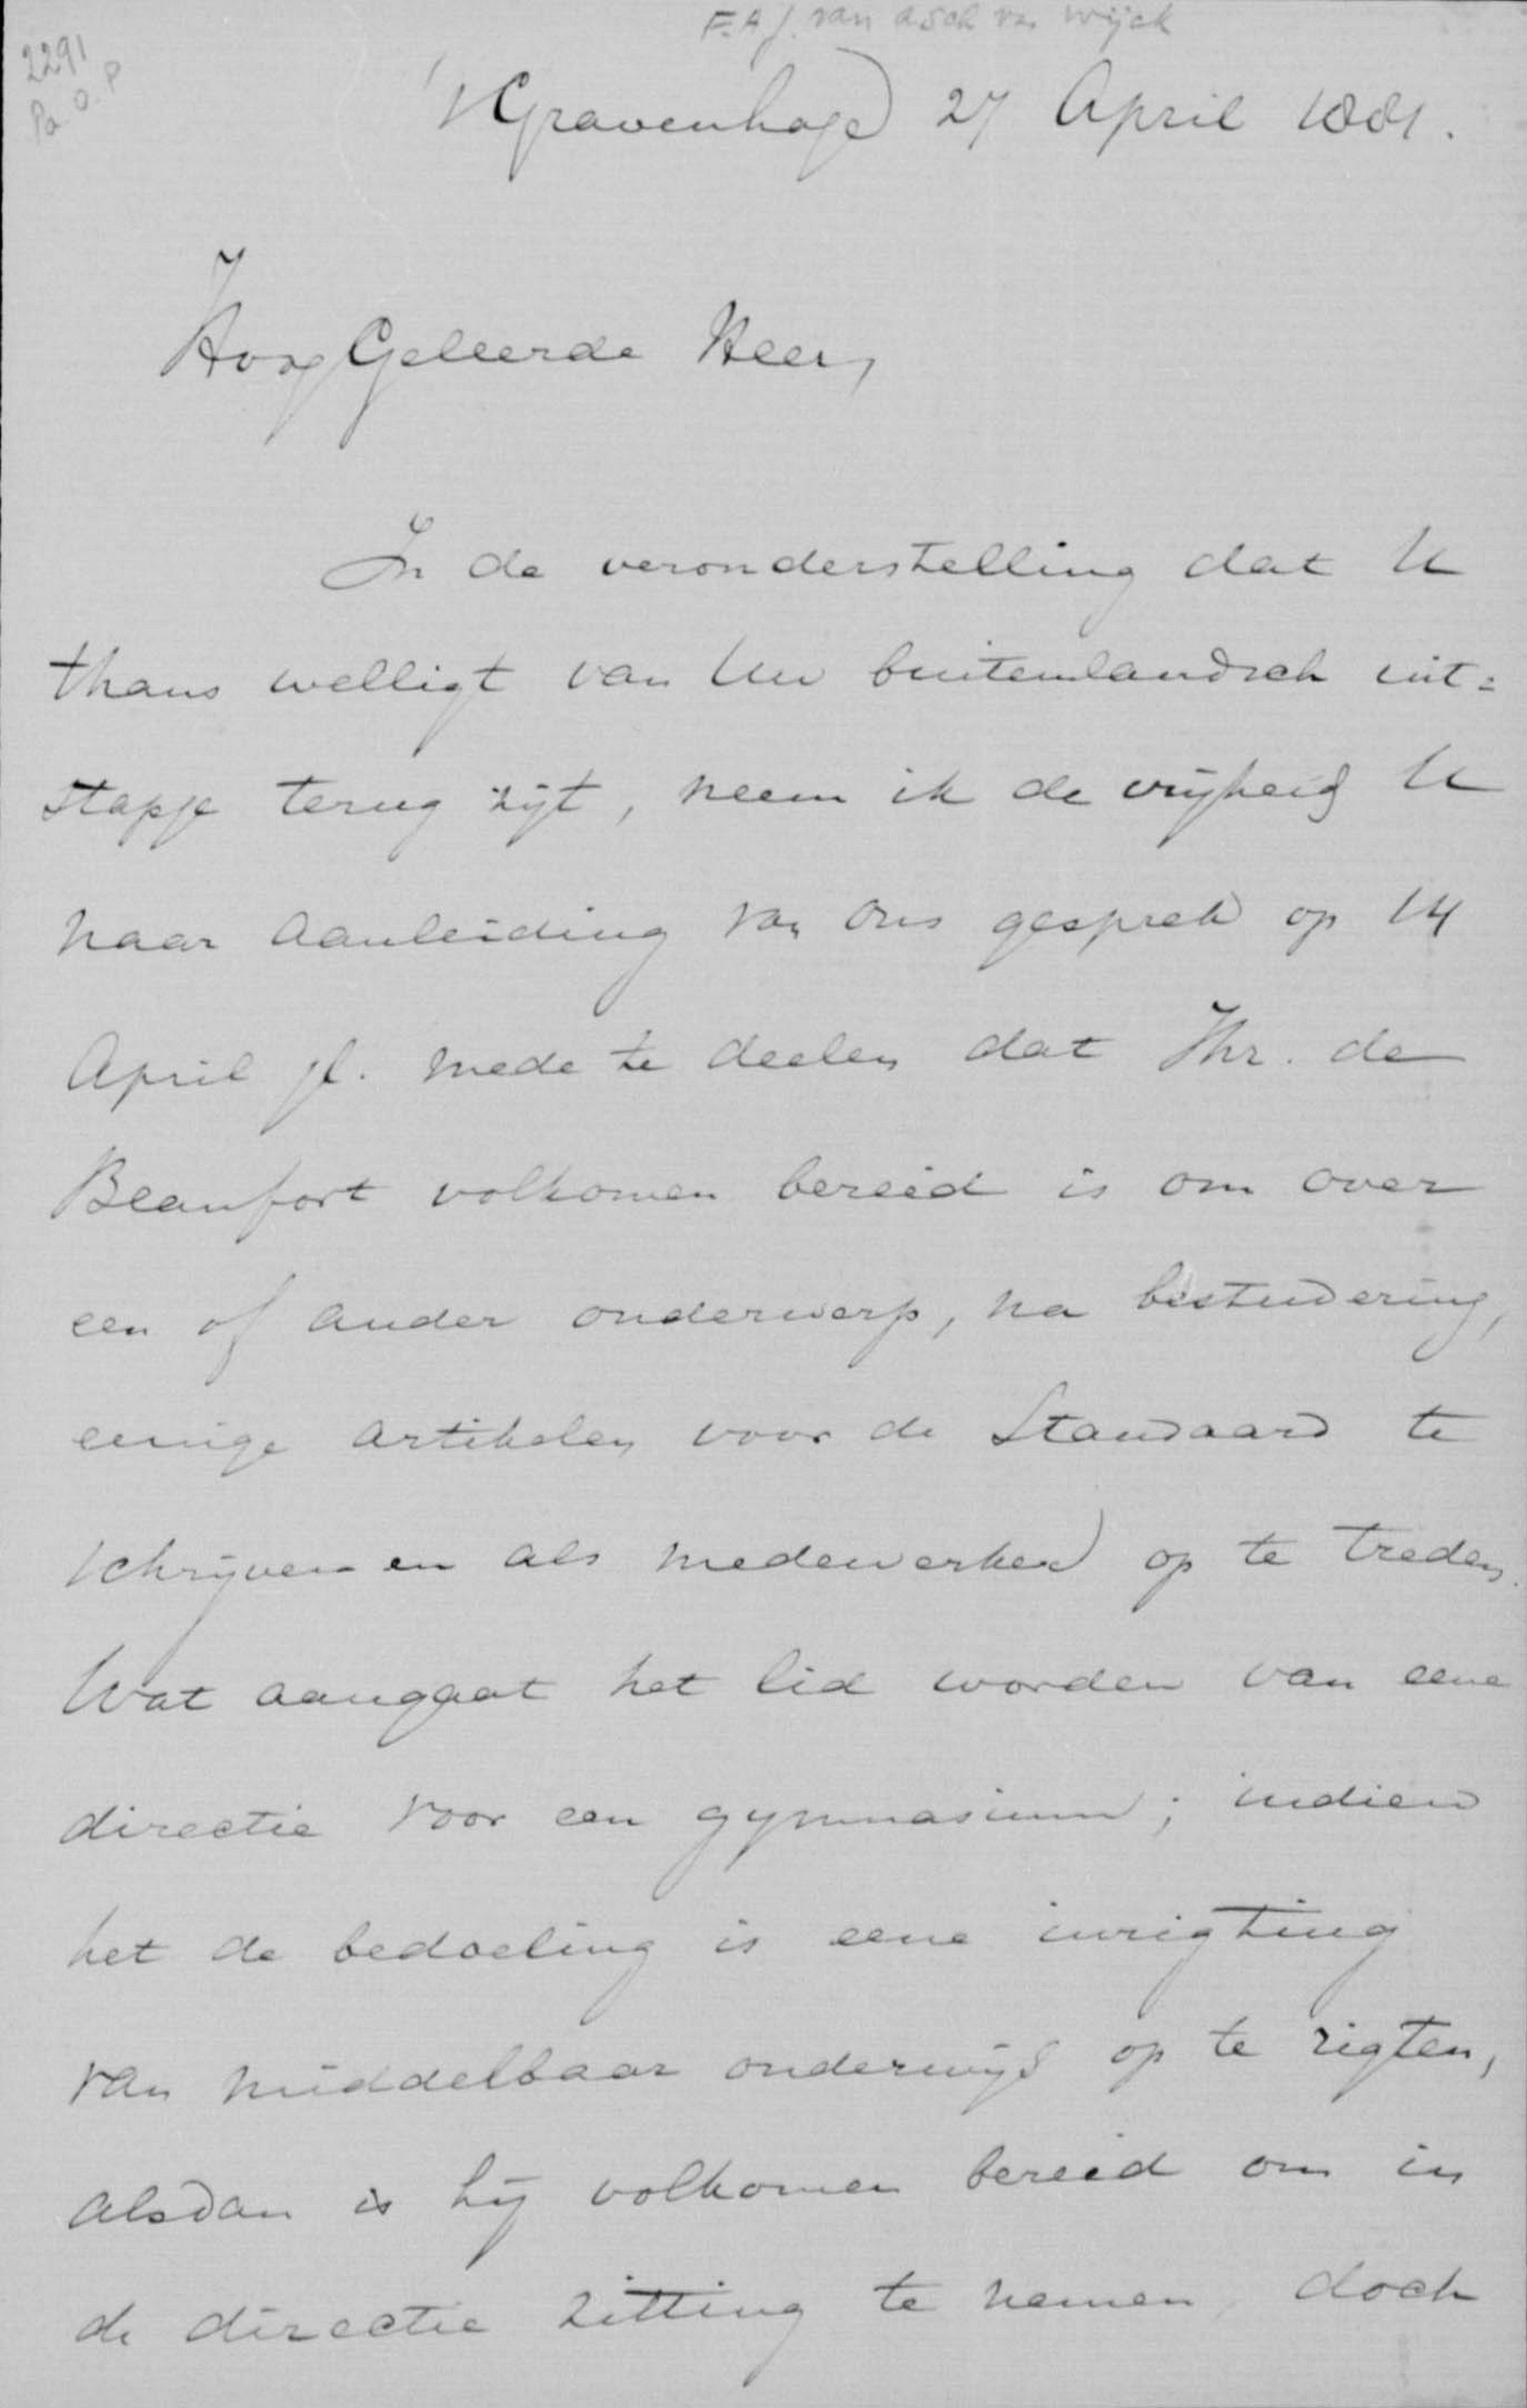 F.A.J. van Asch van Wijck
2291
Pa. O. P
's Gravenhage 27 April 1881.
HoogGeleerde Heer,
In de veronderstelling dat U
thans welligt van Uw buitenlandsch uit=
stapje terug zijt, neem ik de vrijheid U
naar aanleiding van ons gesprek op 14
April jl. mede te deelen dat Jhr. de
Beaufort volkomen bereid is om over
een of ander onderwerp, na bestudering,
eenige artikelen voor de Standaard te
schrijven en als medewerker op te treden.
Wat aangaat het lid worden van eene
directie voor een gymnasium; indien
het de bedoeling is eene inrigting
van middelbaar onderwijs op te rigten,
alsdan is hij volkomen bereid om in
de directie zitting te nemen, doch